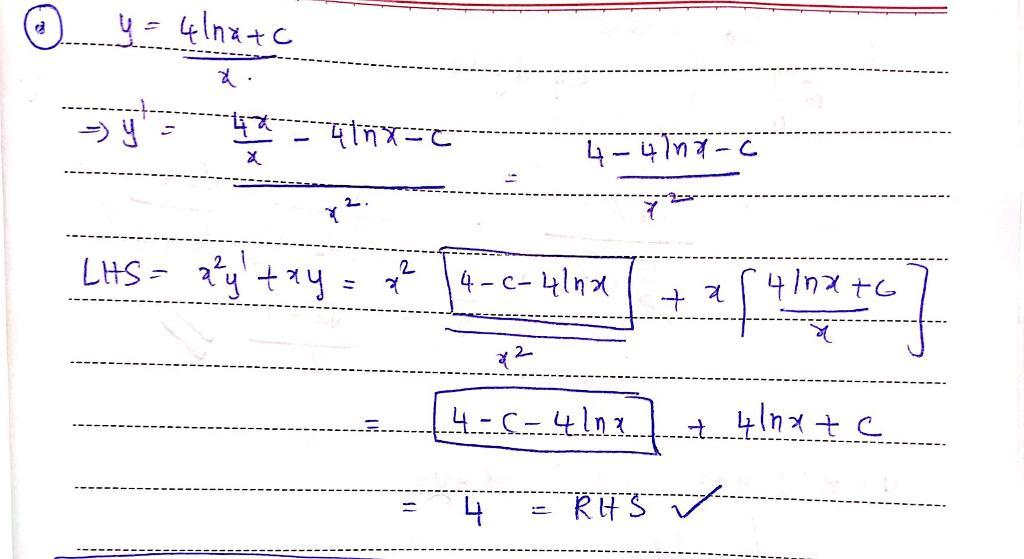 (a) y = (4lnx+c)/x.
⇒ y' = (4x/x - 4lnx-c)/x². = (4-4lnx-c)/x²
LHS = x²y' + xy = x² [4-c-4lnx]/x² + x[(4lnx+c)/x]
= [4-c-4lnx] + 4lnx + c
= 4 = RHS ✓